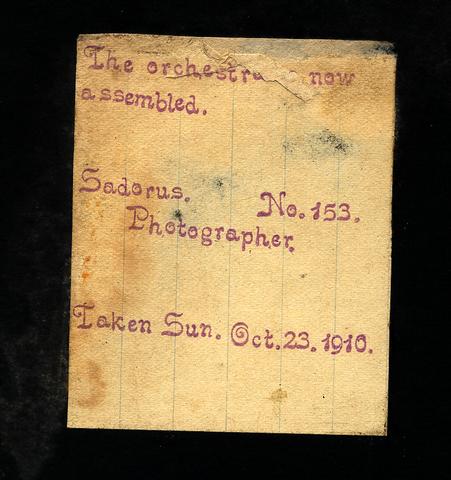 The orchestra now
assembled.
Sadorus. No. 153.
Photographer.
Taken Sun. Oct. 23. 1910.